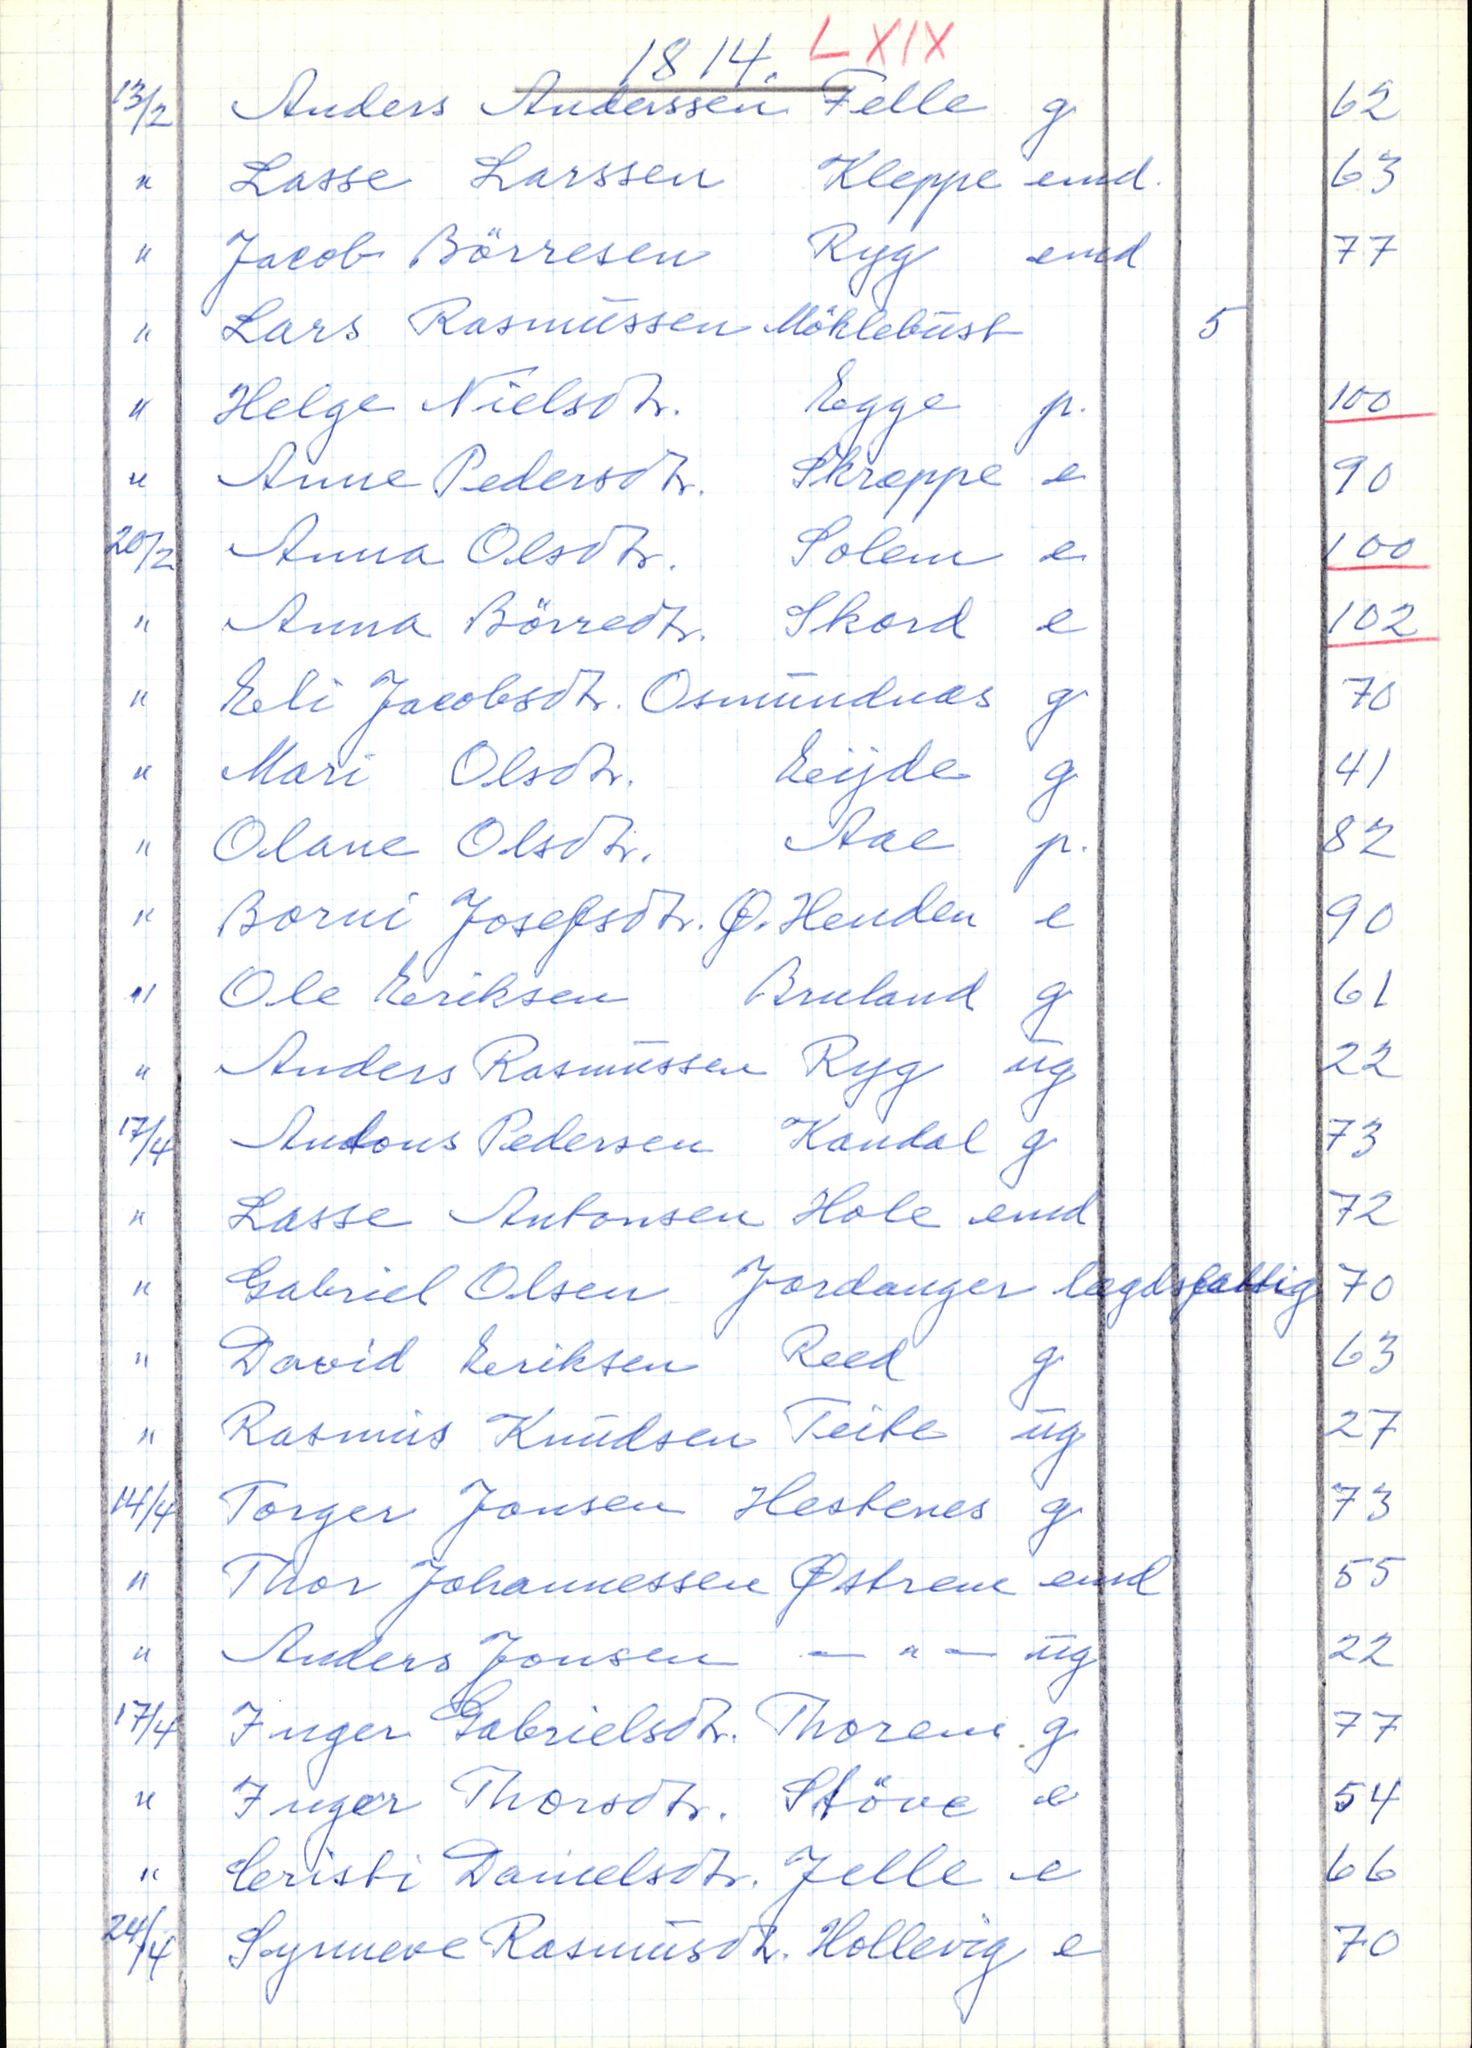 1814. LXIX
13/2 Anders Anderssen Felle g 62
" Lasse Larssen Kleppe emd. 63
" Jacob Börresen Ryg emd 77
" Lars Rasmussen Möklebust 5
" Helge Nielsdtr. Egge p. 100
" Anne Pedersdtr. Skræppe e 90
20/2 Anna Olsdtr. Solem e 100
" Anna Börredtr. Skord e 102
" Eli Jacobsdtr. Osmundnæs g 70
" Mari Olsdtr. Eijde g 41
" Olane Olsdtr. Aae p. 82
" Borni Josefsdtr. Ø. Henden e 90
" Ole Eriksen Bruland g 61
" Anders Rasmussen Ryg ug 22
17/4 Antons Pedersen Kandal g 73
" Lasse Antonsen Hole emd 72
" Gabriel Olsen Jordanger lægdsfattig 70
" David Eriksen Reed g 63
" Rasmus Knudsen Teite ug 27
14/4 Torger Jonsen Hestenes g 73
" Thor Johannessen Østrem emd 55
" Anders Jonsen — " — ug 22
17/4 Inger Gabrielsdtr. Thorem g 77
" Inger Thorsdtr. Støve e 54
" Cristi Danielsdtr. Jelle e 66
24/4 Synneve Rasmusdtr. Hollevig e 70